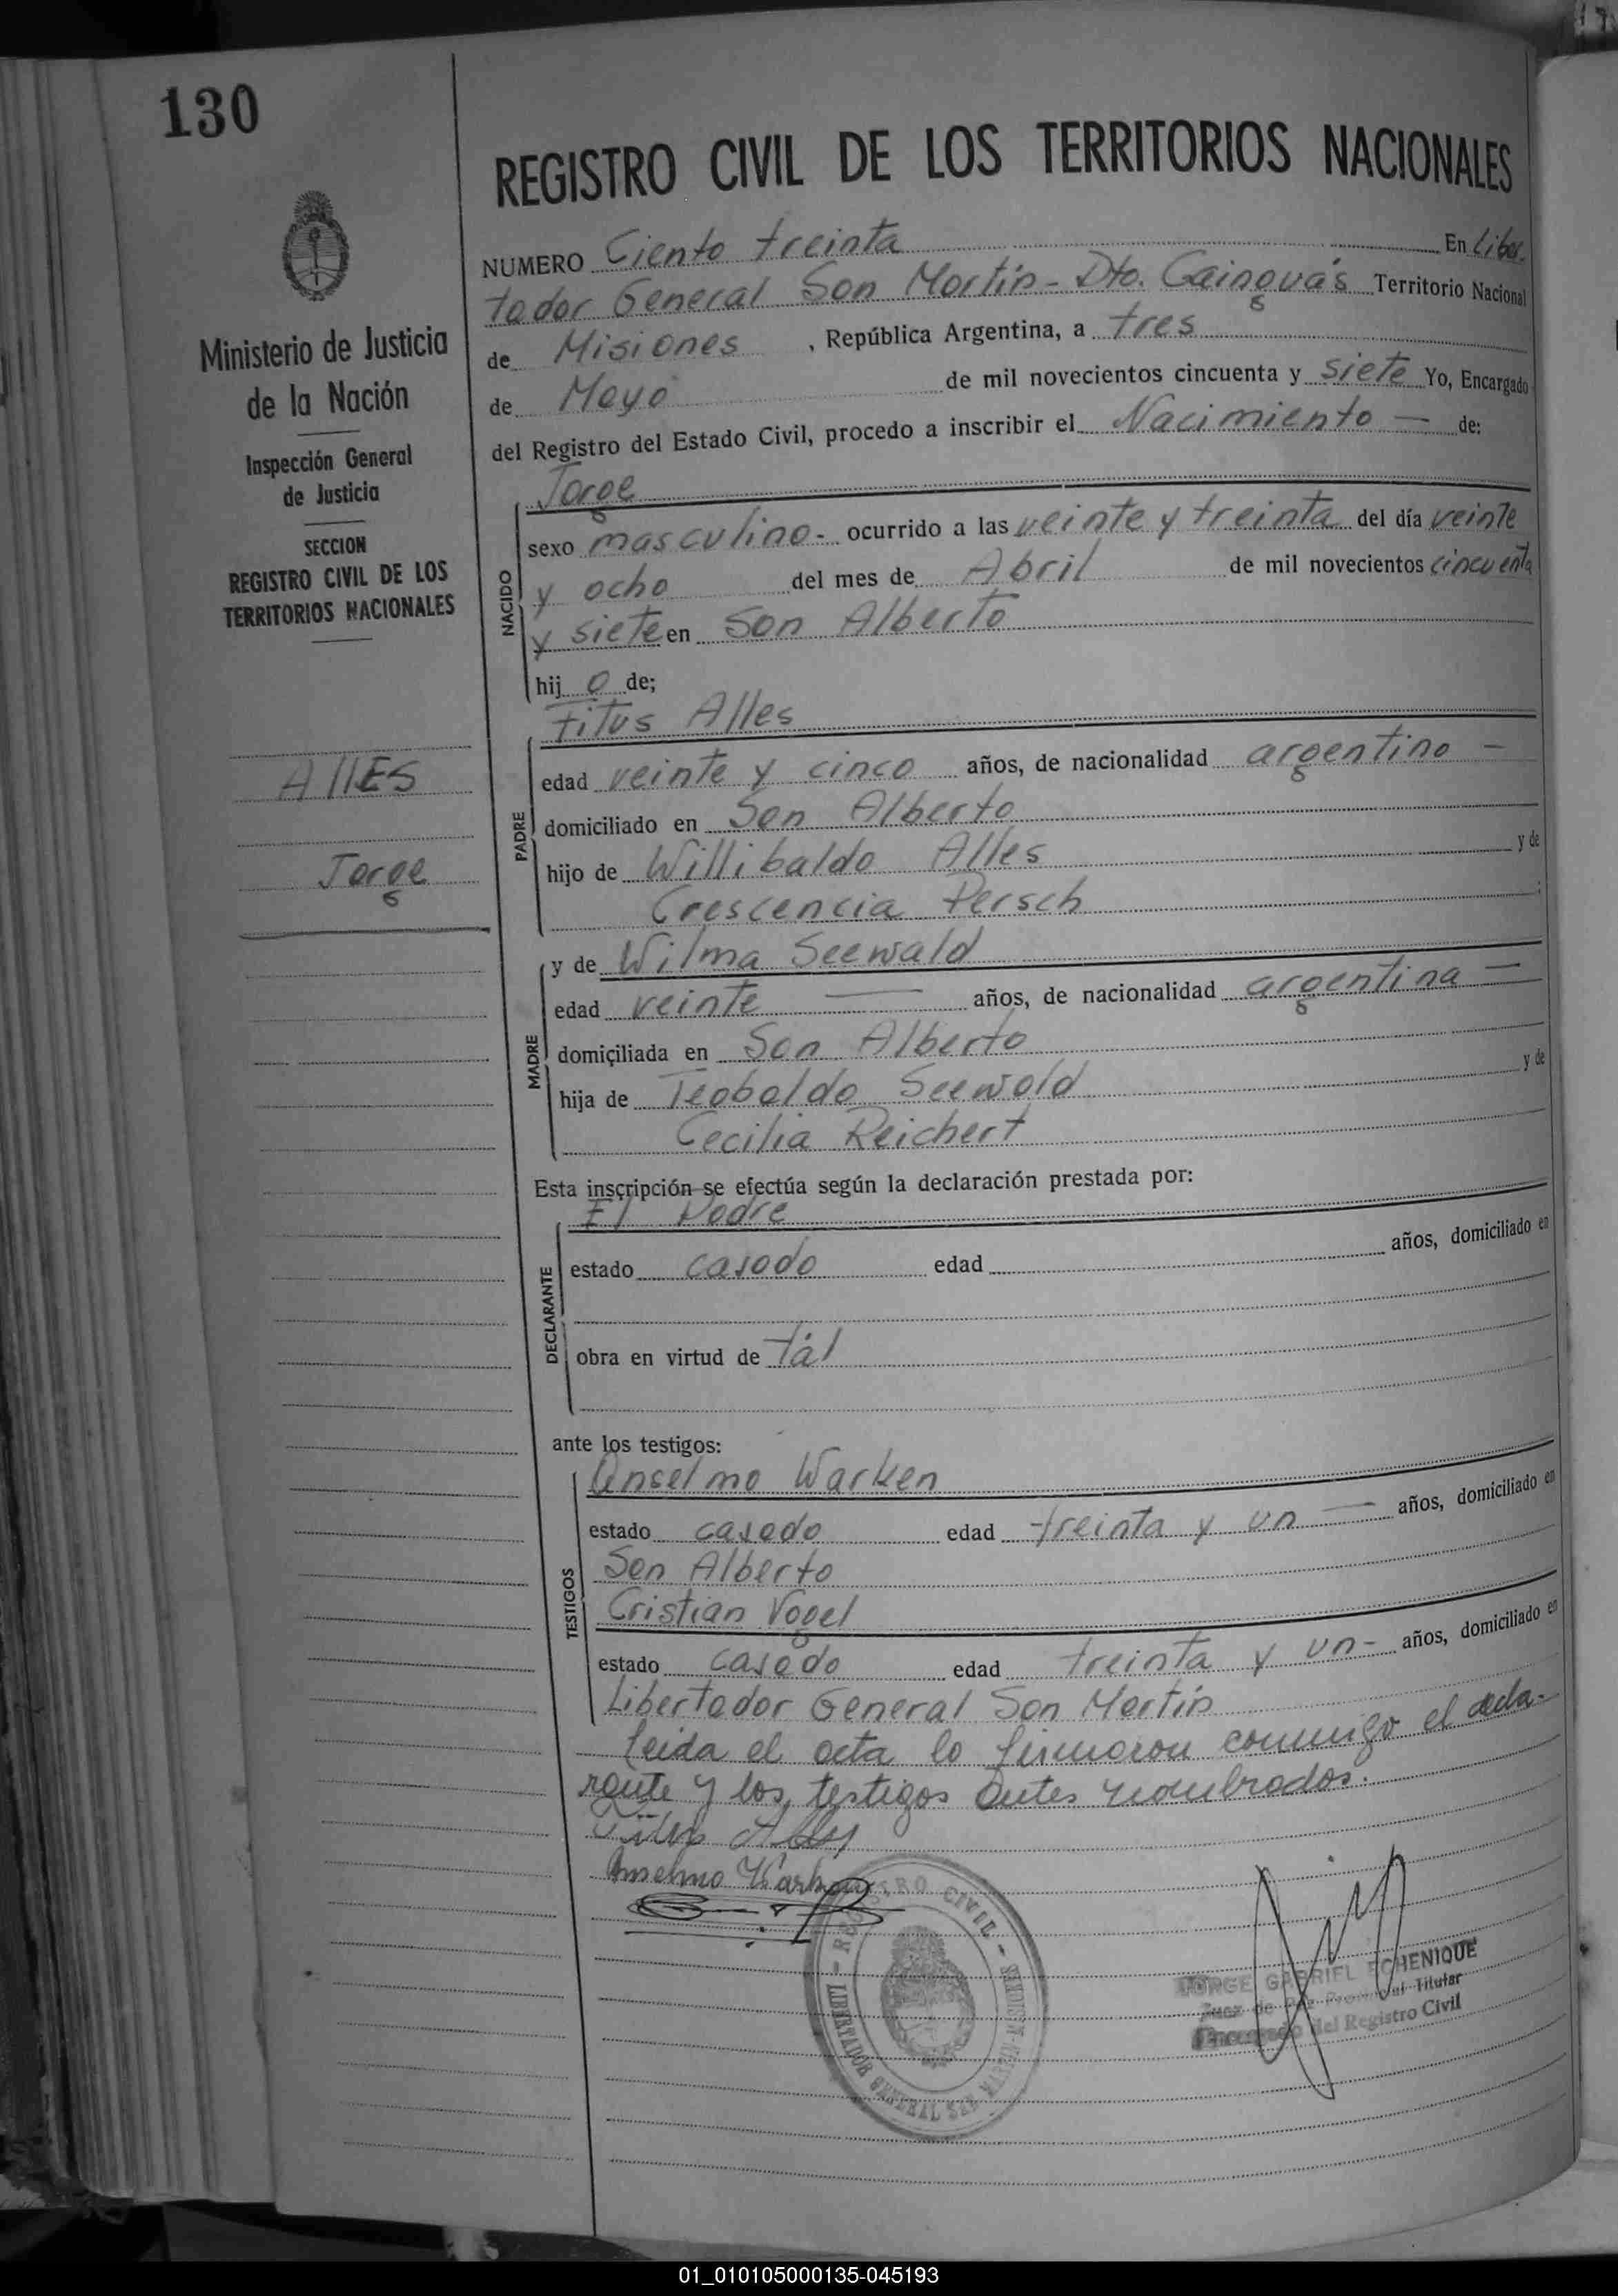 130
REGISTRO CIVIL DE LOS TERRITORIOS NACIONALES
Ministerio de Justicia
de la Nación
Inspección General
de Justicia
SECCION
REGISTRO CIVIL DE LOS
TERRITORIOS NACIONALES
AllES
Jorge
NUMERO Ciento treinta En Liber-
tador General San Martín - Dto. Cainguás Territorio Nacional
de Misiones , República Argentina, a tres
de Mayo de mil novecientos cincuenta y siete Yo, Encargado
del Registro del Estado Civil, procedo a inscribir el Nacimiento — de:
Jorge
NACIDO
sexo masculino - ocurrido a las veinte y treinta del día veinte
y ocho del mes de Abril de mil novecientos cincuenta
y siete en San Alberto
hij o de;
Titus Alles
PADRE
edad veinte y cinco años, de nacionalidad argentino —
domiciliado en San Alberto
hijo de Willibaldo Alles y de
Crescencia Persch ;
y de Wilma Seewald
MADRE
edad veinte — años, de nacionalidad argentina —
domiciliada en San Alberto
hija de Teobaldo Seewald y de
Cecilia Reichert
Esta inscripción se efectúa según la declaración prestada por:
El Padre
DECLARANTE
estado casado edad años, domiciliado en
obra en virtud de tál
ante los testigos:
Anselmo Warken
TESTIGOS
estado casado edad treinta y un — años, domiciliado en
San Alberto
Cristian Vogel
estado casado edad treinta y un - años, domiciliado en
Libertador General San Martín
Leida el acta lo firmaron conmigo el decla-
rante y los testigos antes nombrados.
Titus Alles
Anselmo Warken
REGISTRO CIVIL - LIBERTADOR GENERAL SAN MARTIN
JORGE GABRIEL ECHENIQUE
Juez de Paz Provincial Titular
Encargado del Registro Civil
01_010105000135-045193